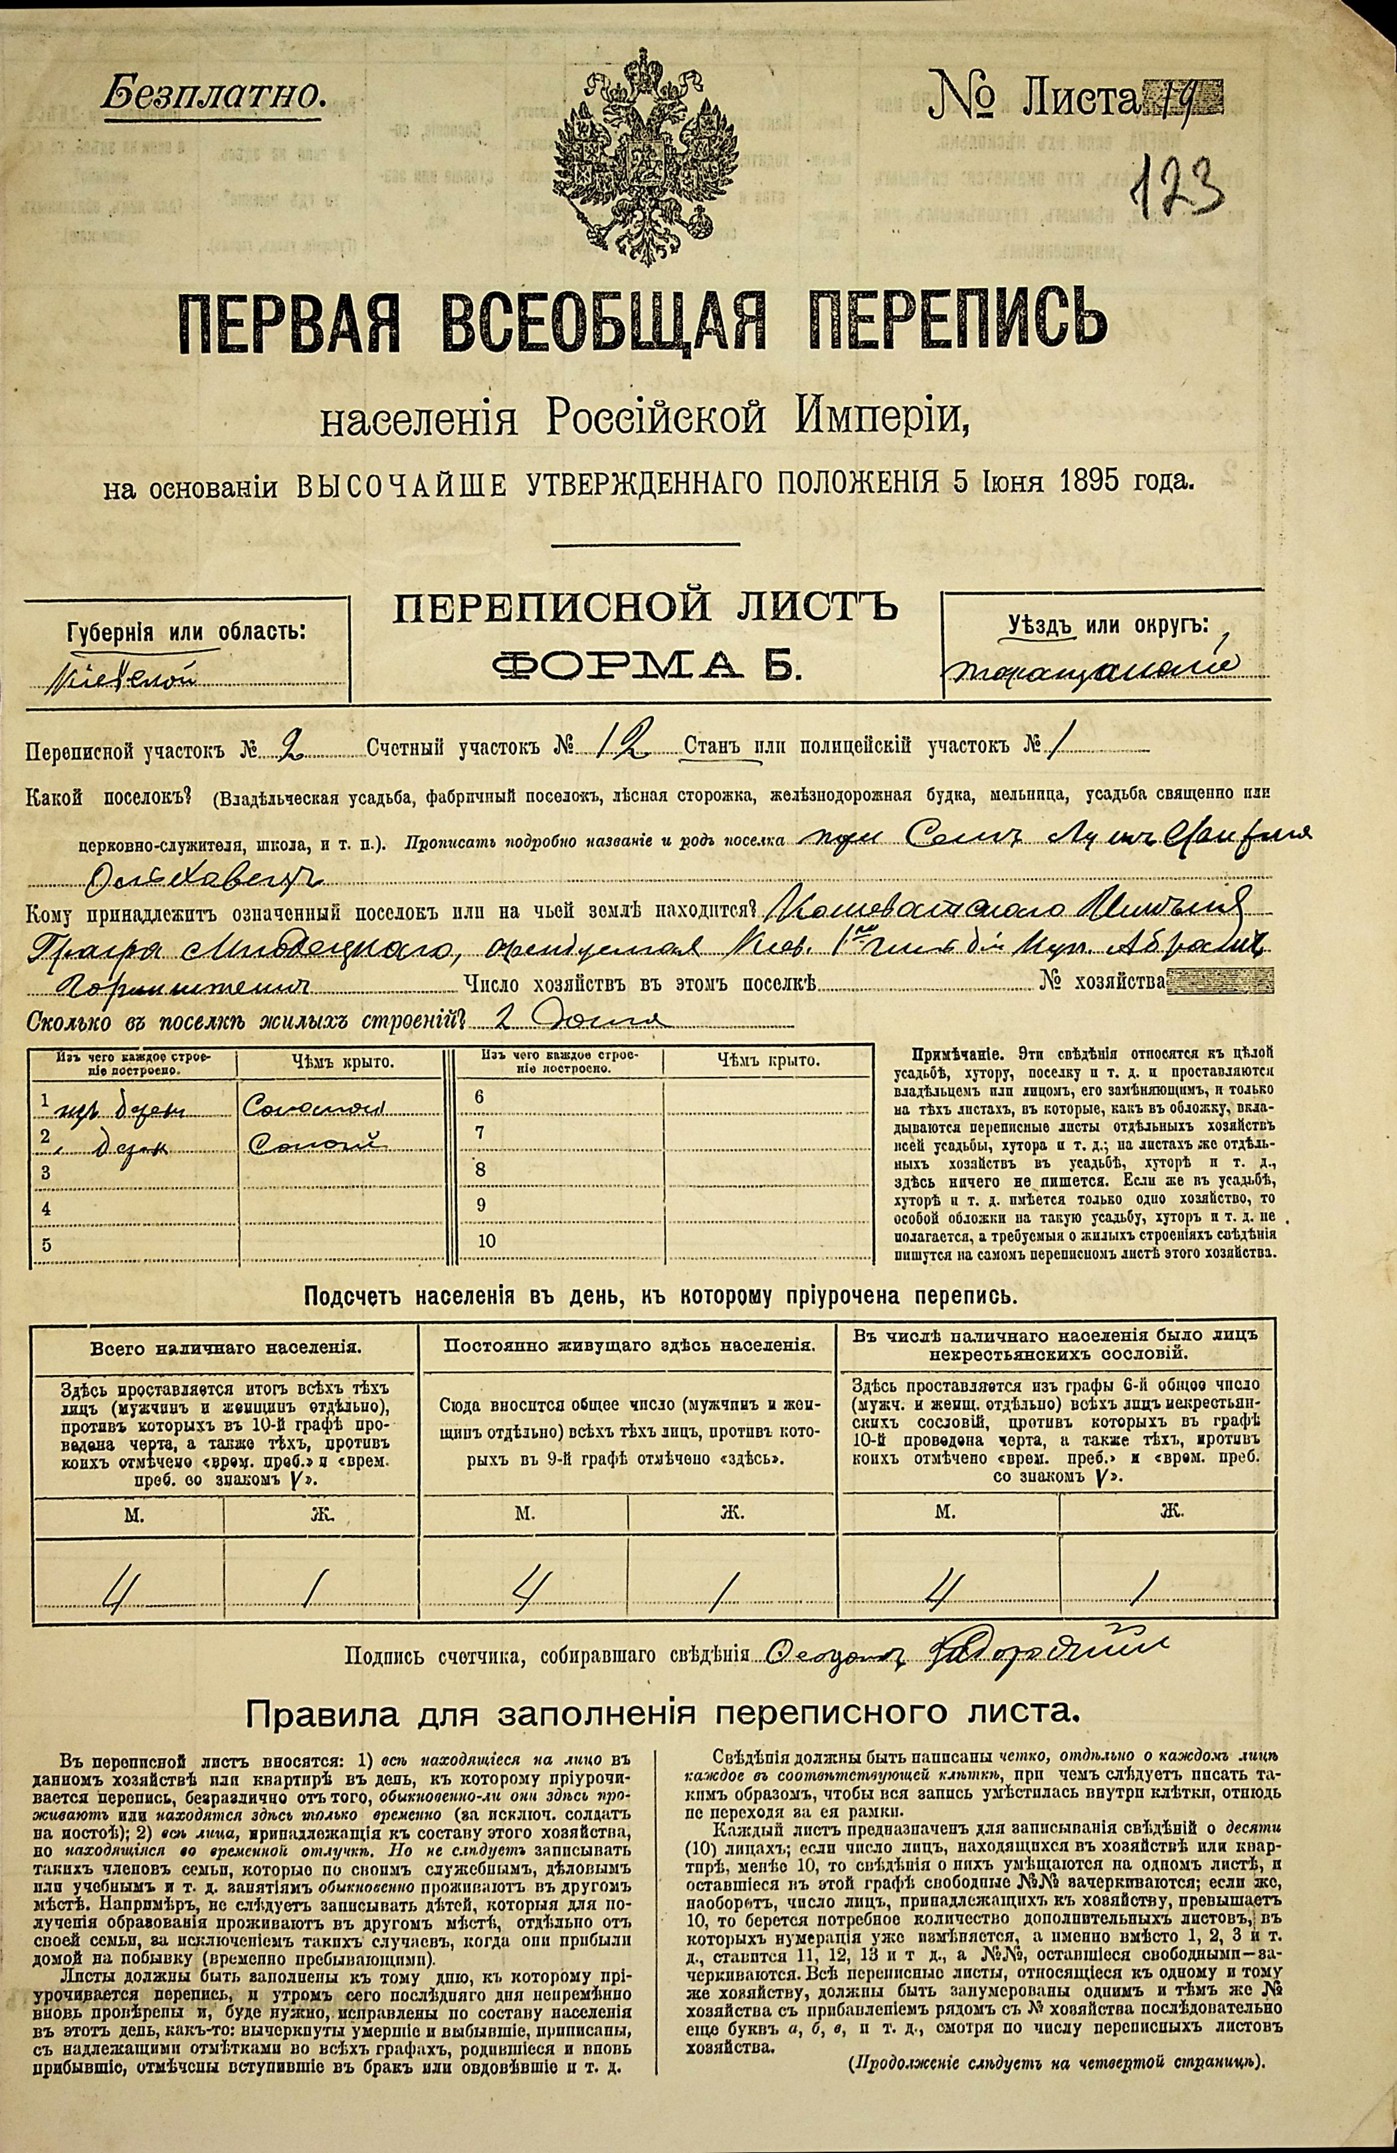 Безплатно.
№ Листа 19
123
ПЕРВАЯ ВСЕОБЩАЯ ПЕРЕПИСЬ
населенія Россійской Имперіи,
на основаніи ВЫСОЧАЙШЕ УТВЕРЖДЕННАГО ПОЛОЖЕНІЯ 5 Іюня 1895 года.
Губернія или область:
Кіевской
ПЕРЕПИСНОЙ ЛИСТЪ
ФОРМА Б.
Уѣздъ или округъ:
Таращанскіе
Переписной участокъ № 2 Счетный участокъ № 12 Станъ или полицейскій участокъ № 1
Какой поселокъ? (Владѣльческая усадьба, фабричный поселокъ, лѣсная сторожка, желѣзнодорожная будка, мельница, усадьба священно или
церковно-служителя, школа, и т. п.). Прописать подробно названіе и родъ поселка при
Кому принадлежитъ означенный поселокъ или на чьей землѣ находится? Кошеватскаго Имѣнія
Графа арендуемая Кіев. куп.
Число хозяйствъ въ этомъ поселкѣ № хозяйства
Сколько въ поселкѣ жилыхъ строеній? 2 дома
Изъ чего каждое строеніе построено. Чѣмъ крыто. Изъ чего каждое строеніе построено. Чѣмъ крыто.
1 изъ дерев Соломой 6
2 „ дерев Соломой 7
3 8
4 9
5 10
Примѣчаніе. Эти свѣдѣнія относятся къ цѣлой
усадьбѣ, хутору, поселку и т. д. и проставляются
владѣльцемъ или лицомъ, его замѣняющимъ, и только
на тѣхъ листахъ, въ которые, какъ въ обложку, вкла-
дываются переписные листы отдѣльныхъ хозяйствъ
всей усадьбы, хутора и т. д.; на листахъ же отдѣль-
ныхъ хозяйствъ въ усадьбѣ, хуторѣ и т. д.,
здѣсь ничего не пишется. Если же въ усадьбѣ,
хуторѣ и т. д. имѣется только одно хозяйство, то
особой обложки на такую усадьбу, хуторъ и т. д. не
полагается, а требуемыя о жилыхъ строеніяхъ свѣдѣнія
пишутся на самомъ переписномъ листѣ этого хозяйства.
Подсчетъ населенія въ день, къ которому пріурочена перепись.
Всего наличнаго населенія.
Здѣсь проставляется итогъ всѣхъ тѣхъ
лицъ (мужчинъ и женщинъ отдѣльно),
противъ которыхъ въ 10-й графѣ про-
ведена черта, а также тѣхъ, противъ
коихъ отмѣчено «врем. преб.» и «врем.
преб. со знакомъ V».
М. Ж.
4 1
Постоянно живущаго здѣсь населенія.
Сюда вносится общее число (мужчинъ и жен-
щинъ отдѣльно) всѣхъ тѣхъ лицъ, противъ кото-
рыхъ въ 9-й графѣ отмѣчено «здѣсь».
М. Ж.
4 1
Въ числѣ наличнаго населенія было лицъ
некрестьянскихъ сословій.
Здѣсь проставляется изъ графы 6-й общее число
(мужч. и женщ. отдѣльно) всѣхъ лицъ некрестьян-
скихъ сословій, противъ которыхъ въ графѣ
10-й проведена черта, а также тѣхъ, противъ
коихъ отмѣчено «врем. преб.» и «врем. преб.
со знакомъ V».
М. Ж.
4 1
Подпись счетчика, собиравшаго свѣдѣнія
Правила для заполненія переписного листа.
Въ переписной листъ вносятся: 1) всѣ находящіеся на лицо въ
данномъ хозяйствѣ или квартирѣ въ день, къ которому пріурочи-
вается перепись, безразлично отъ того, обыкновенно-ли они здѣсь про-
живаютъ или находятся здѣсь только временно (за исключ. солдатъ
на постоѣ); 2) всѣ лица, принадлежащія къ составу этого хозяйства,
но находящіяся во временной отлучкѣ. Но не слѣдуетъ записывать
такихъ членовъ семьи, которые по своимъ служебнымъ, дѣловымъ
или учебнымъ и т. д. занятіямъ обыкновенно проживаютъ въ другомъ
мѣстѣ. Напримѣръ, не слѣдуетъ записывать дѣтей, которыя для по-
лученія образованія проживаютъ въ другомъ мѣстѣ, отдѣльно отъ
своей семьи, за исключеніемъ такихъ случаевъ, когда они прибыли
домой на побывку (временно пребывающими).
Листы должны быть заполнены къ тому дню, къ которому прі-
урочивается перепись, и утромъ сего послѣдняго дня непремѣнно
вновь провѣрены и, буде нужно, исправлены по составу населенія
въ этотъ день, какъ-то: вычеркнуты умершіе и выбывшіе, приписаны,
съ надлежащими отмѣтками во всѣхъ графахъ, родившіеся и вновь
прибывшіе, отмѣчены вступившіе въ бракъ или овдовѣвшіе и т. д.
Свѣдѣнія должны быть написаны четко, отдѣльно о каждомъ лицѣ
каждое въ соотвѣтствующей клѣткѣ, при чемъ слѣдуетъ писать та-
кимъ образомъ, чтобы вся запись умѣстилась внутри клѣтки, отнюдь
не переходя за ея рамки.
Каждый листъ предназначенъ для записыванія свѣдѣній о десяти
(10) лицахъ; если число лицъ, находящихся въ хозяйствѣ или квар-
тирѣ, менѣе 10, то свѣдѣнія о нихъ умѣщаются на одномъ листѣ, и
оставшіеся въ этой графѣ свободные №№ зачеркиваются; если же,
наоборотъ, число лицъ, принадлежащихъ къ хозяйству, превышаетъ
10, то берется потребное количество дополнительныхъ листовъ, въ
которыхъ нумерація уже измѣняется, а именно вмѣсто 1, 2, 3 и т.
д., ставится 11, 12, 13 и т д., а №№, оставшіеся свободными—за-
черкиваются. Всѣ переписные листы, относящіеся къ одному и тому
же хозяйству, должны быть занумерованы однимъ и тѣмъ же №
хозяйства съ прибавленіемъ рядомъ съ № хозяйства послѣдовательно
еще буквъ а, б, в, и т. д., смотря по числу переписныхъ листовъ
хозяйства.
(Продолженіе слѣдуетъ на четвертой страницѣ).